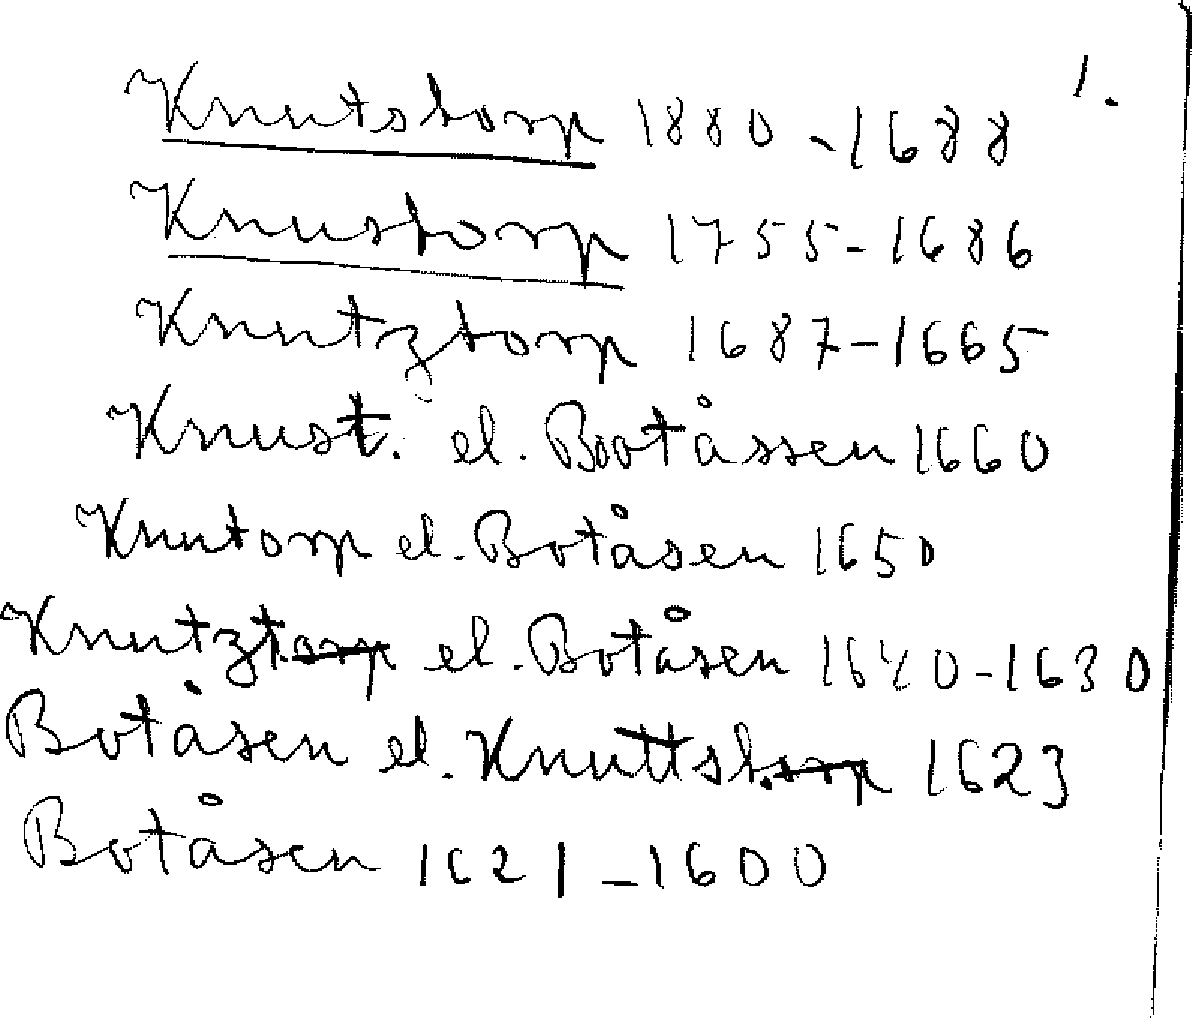 1.
Knutstorp 1880-1688
Knustorp 1755-1686
Knutztorp 1687-1665
Knust. el. Bootåssen 1660
Knutorp el. Botåsen 1650
Knutztorp el. Botåsen 1640-1630
Botåsen el. Knuttstorp 1623
Botåsen 1621-1600